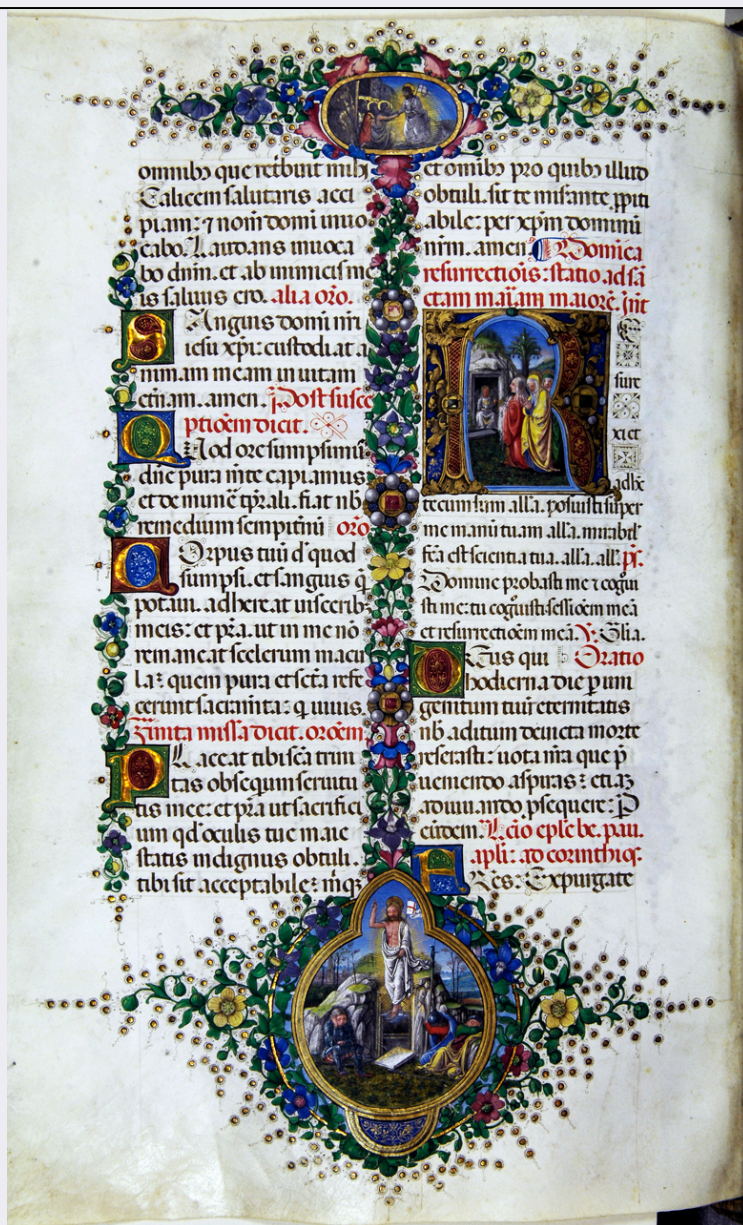 omnibꝫ que retˀbuit mihi
Calicem salutaris acci
piam: ⁊ nom̄ domī inuo
cabo. Laudans inuoca
bo dn̄m. et ab inimicis me
is saluus ero. alia or̄o.
SAnguis domī nr̄i
iesu xp̄i: custodiat a
nimam meam in uitam
et̄nam. amen. Post susce
ptiōem dicit.
QUod ore sumpsimꝰ
dn̄e pura m̄te capiamus
et de mune᷑ tp̄rali. fiat nb̄
remedium sempit̄nū or̄o
COrpus tuū d' quod
sumpsi. et sanguis q̄
potaui. adhereat uiscerib
meis: et pr̄a. ut in me nō
remaneat scelerum macu
la: quem pura et sc̄ta refe
cerunt sacram̄ta: q uiuis.
Finita missa dicit. oroēm
PLaceat tibi sc̄a trini
tas obsequium seruitu
tis mee: et pr̄a ut sacrifici
um qd' oculis tue maie
statis indignus obtuli.
tibi sit acceptabile: m̄qꝫ
et omibꝫ pro quibꝫ illud
obtuli. sit te miserante ꝓpiti
abile: per xp̄m dominū
nr̄m. amen Domīca
resurrectiōis: statio ad sā
ctam mariam maiorē. Int
RE
surre
xi et
adhc
tecum sum all'a. posuisti super
me manū tuam all'a. mirabil'
fc̄a est scientia tua. all'a. all'. p̄s.
Domine probasti me ⁊ cogui
sti me: tu coguisti sessiōem meā
et resurrectiōem meā. V. Gl̄ia.
DEus qui Oratio
hodierna die ꝑ uni
genitum tuū eternitatis
nb̄ aditum deuicta morte
reserasti: uota nr̄a que p̄
ueniendo aspiras: etiaꝫ
adiuuando ꝓsequere: P
eūdem. Lc̄io epl'e be. pau.
apl'i: ad corinthios.
FRes: Expurgate